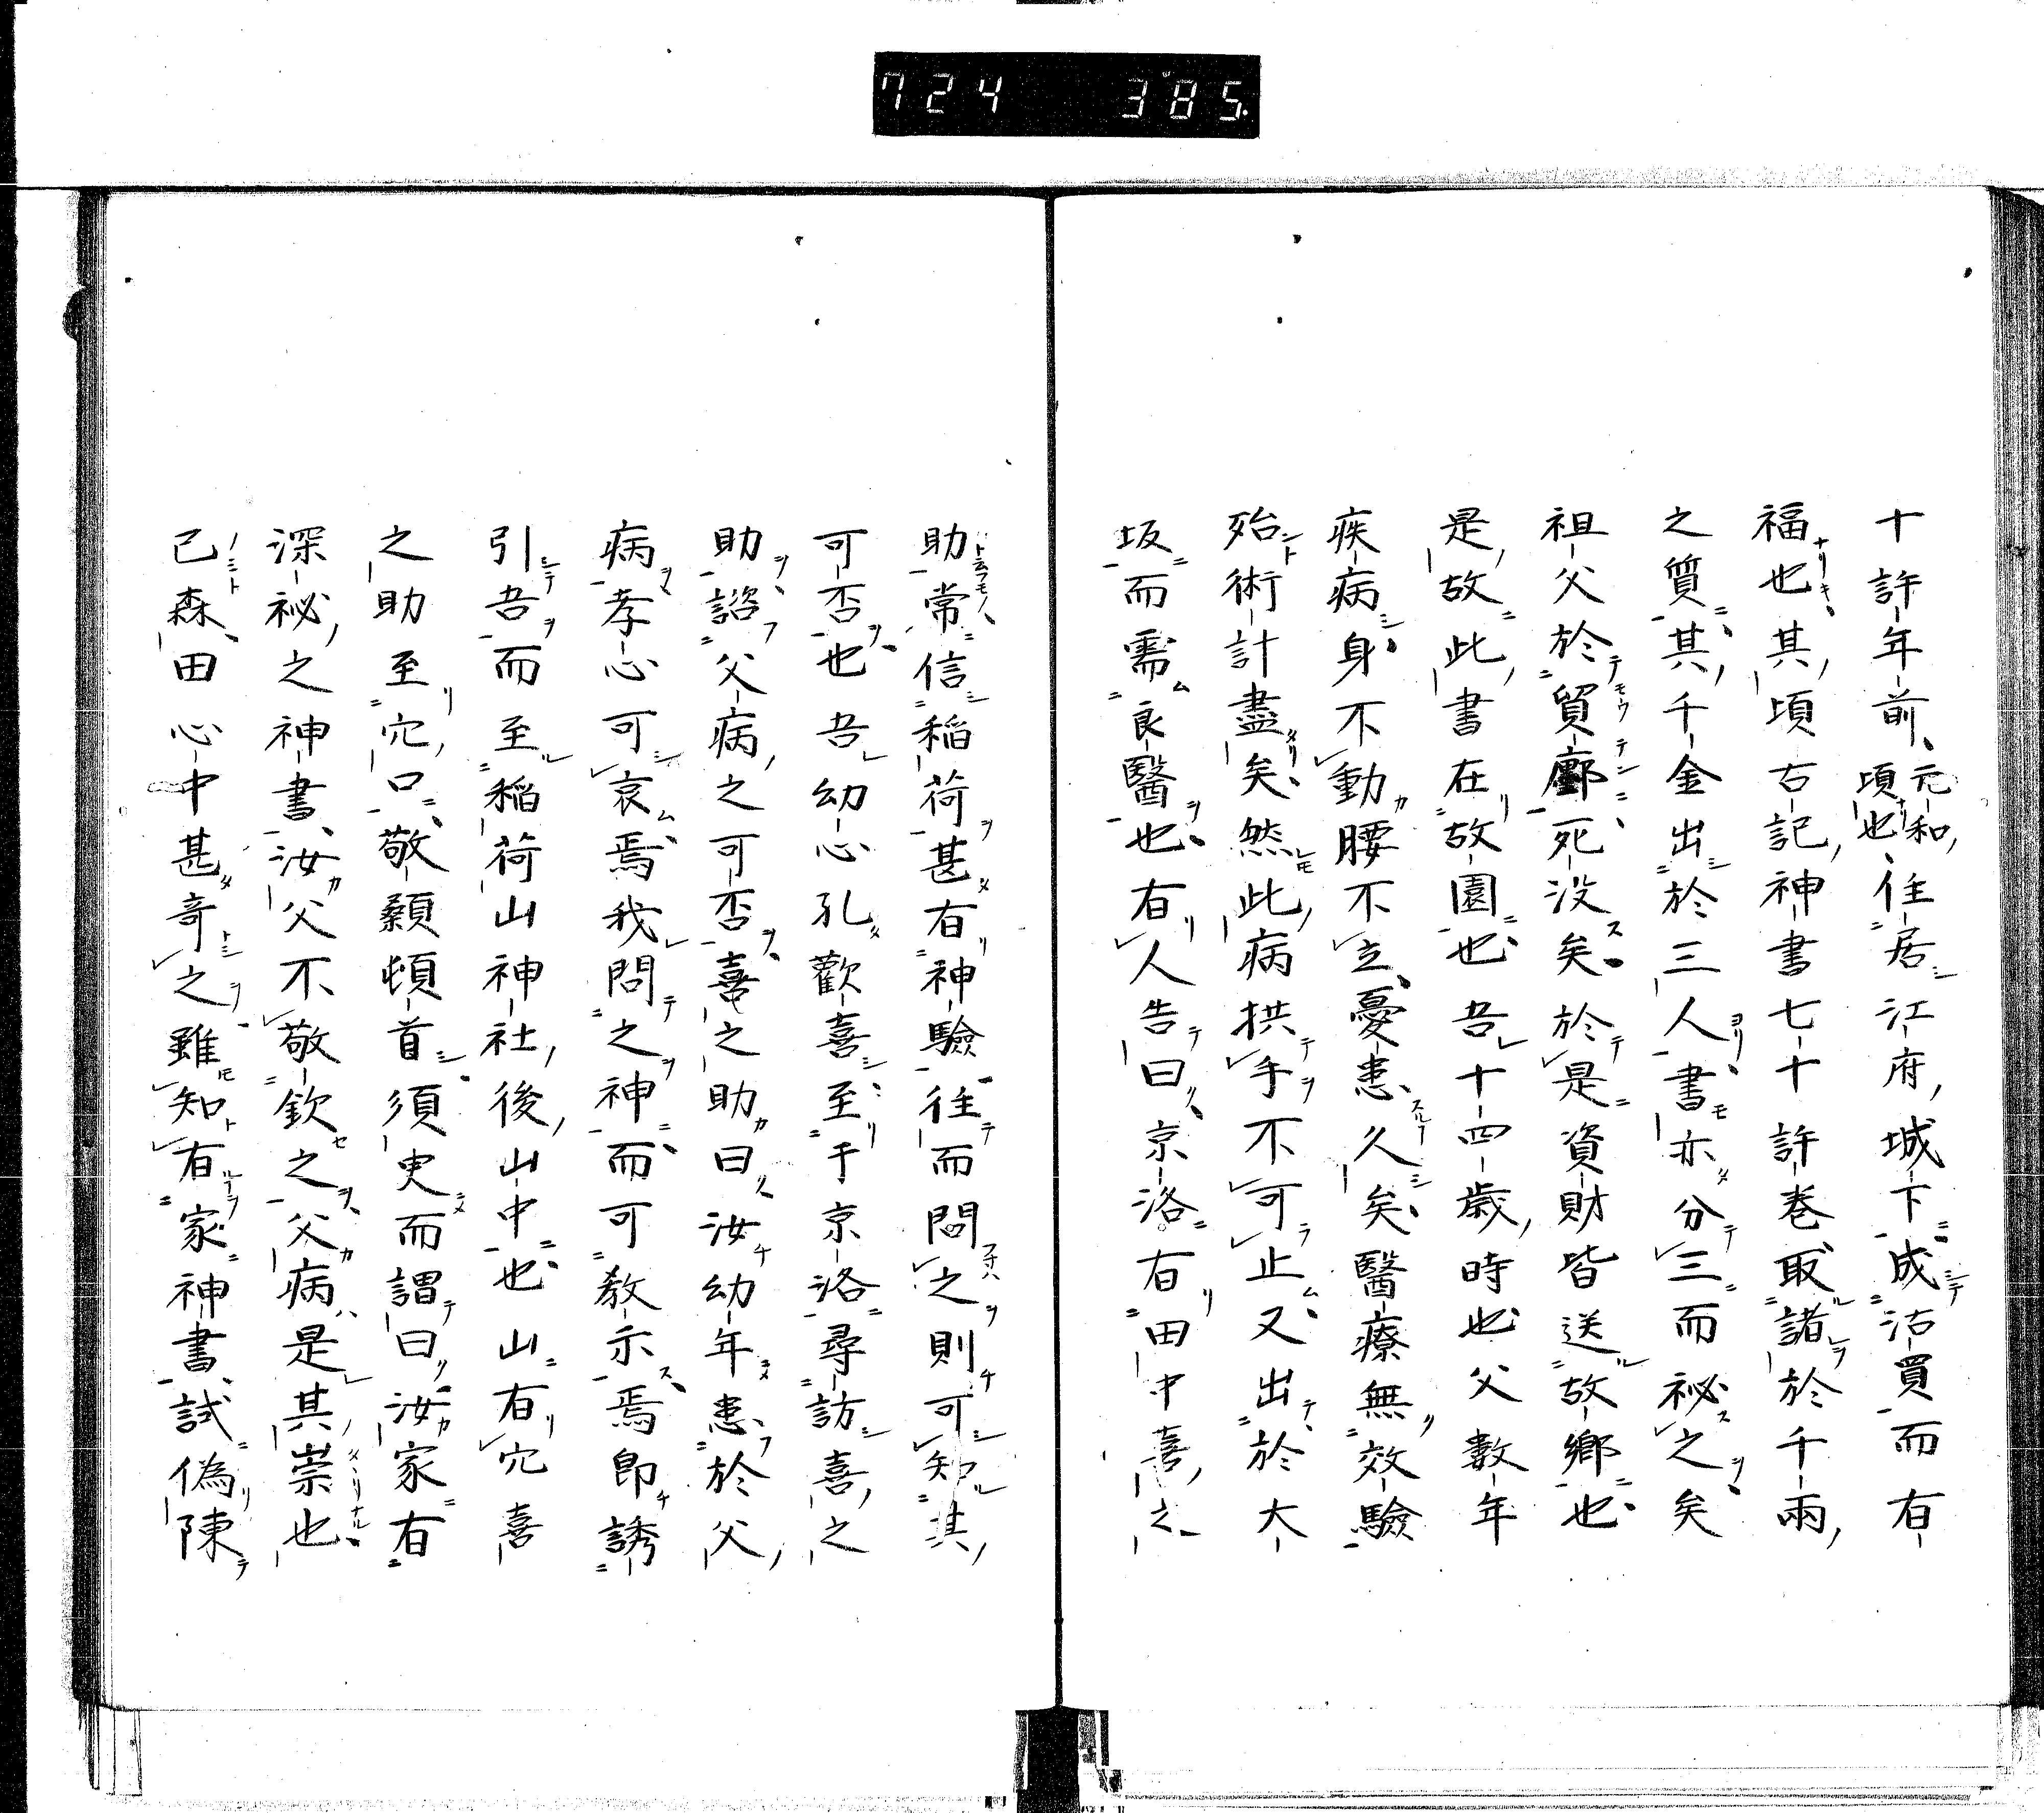 724 385
十許年前元和頃也住居江府城下成沽買而有
福也其頃古記神書七十許巻取諸於千兩
之質其千金出於三人書亦分三而祕之矣
祖父於貿鄽死没矣於是資財皆送故郷也
是故此書在故園也吾十四歳時也父數年
疾病身不動腰不立憂患久矣醫療無效驗
殆術計盡矣然此病拱手不可止又出於大
坂而需良醫也有人告曰京洛有田中喜之
助常信稲荷甚有神驗往而問之則可知其
可否也吾幼心孔歡喜至于京洛尋訪喜之
助諮父病之可否喜之助曰汝幼年患於父
病孝心可哀焉我問之神而可教示焉即誘
引吾而至稲荷山神社後山中也山有穴喜
之助至穴口敬顙頓首須臾而謂曰汝家有
深祕之神書汝父不敬欽之父病是其崇也
己森田心中甚奇之雖知有家神書試偽陳